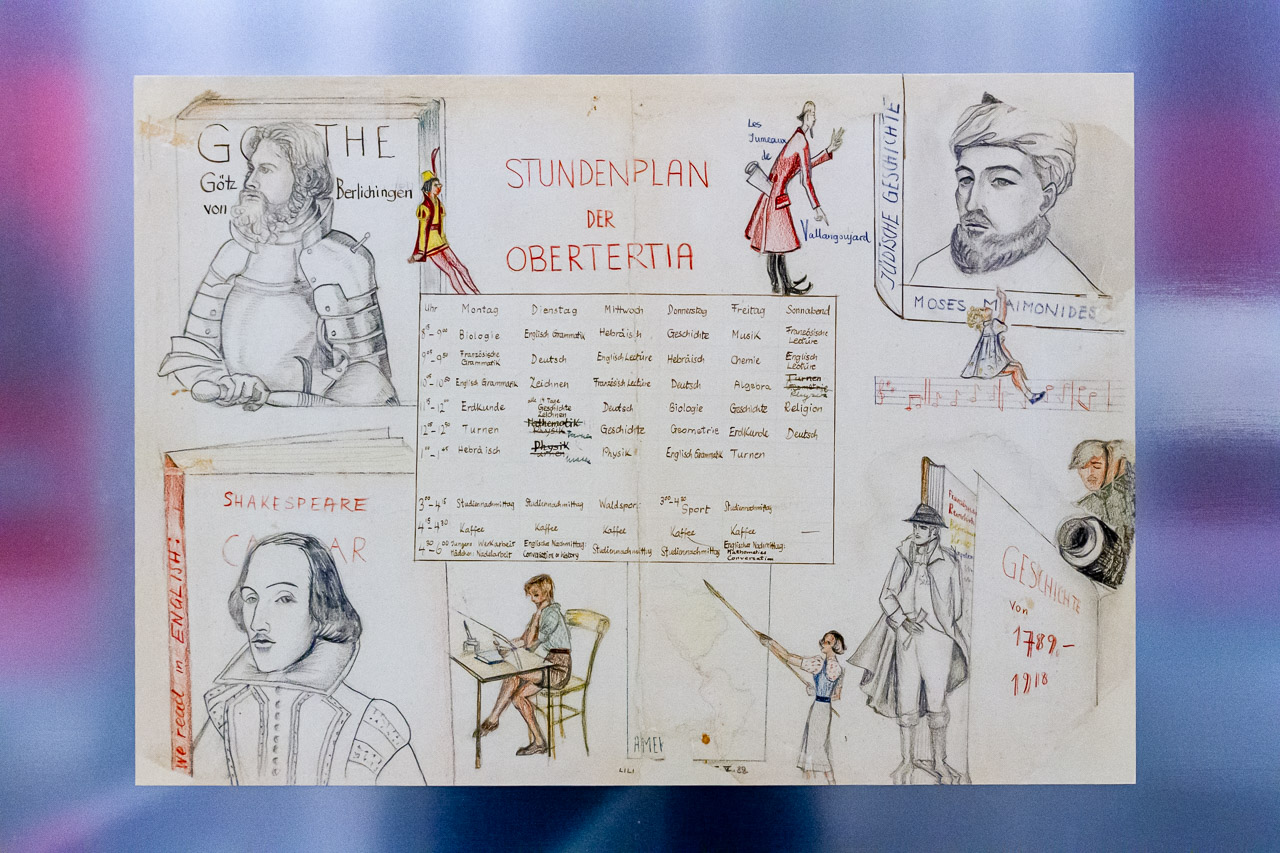 GOETHE
Götz
von
Berlichingen
STUNDENPLAN
DER
OBERTERTIA
Les
Jumeaux
de
Vallangoujard
JÜDISCHE GESCHICHTE
MOSES MAIMONIDES
Uhr Montag Dienstag Mittwoch Donnerstag Freitag Sonnabend
Biologie Englisch Grammatik Hebräisch Geschichte Musik Französische Lectüre
Französische Grammatik Deutsch Englisch Lectüre Hebräisch Chemie Englisch Lectüre
Englisch Grammatik Zeichnen Französisch Lectüre Deutsch Algebra Turnen
Erdkunde alle 14 Tage Geschichte Zeichnen Deutsch Biologie Geschichte Religion
Turnen Mathematik Physik Geschichte Geometrie Erdkunde Deutsch
Hebräisch Physik Physik Englisch Grammatik Turnen
3⁰⁰-4¹⁵ Studiennachmittag Studiennachmittag Waldsport 3⁰⁰-4³⁰ Sport Studiennachmittag
4¹⁵-4³⁰ Kaffee Kaffee Kaffee Kaffee Kaffee —
4³⁰-6⁰⁰ Jungens: Werkarbeit Mädchen: Nadelarbeit Englischer Nachmittag: Conversation or History Studiennachmittag Studiennachmittag Englischer Nachmittag: Mathematics Conversation
we read in ENGLISH:
SHAKESPEARE
CAESAR
AMER
LILI
Französische
Revolution
GESCHICHTE
von
1789-
1918